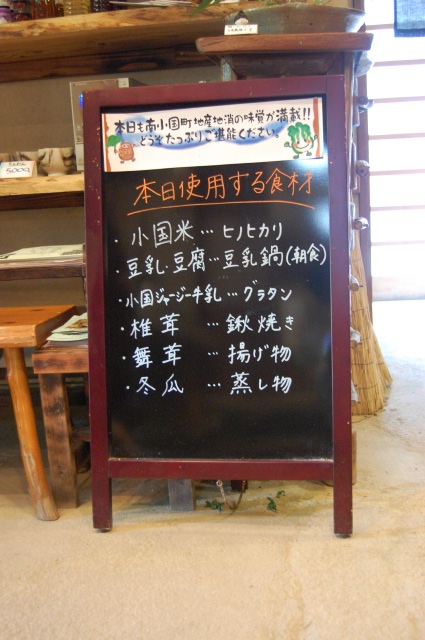 本日も南小国町地産地消の味覚が満載!!
どうぞたっぷりご堪能ください。
本日使用する食材
・小国米…ヒノヒカリ
・豆乳・豆腐…豆乳鍋(朝食)
・小国ジャージー牛乳…グラタン
・椎茸 …鍬焼き
・舞茸 …揚げ物
・冬瓜 …蒸し物
500g